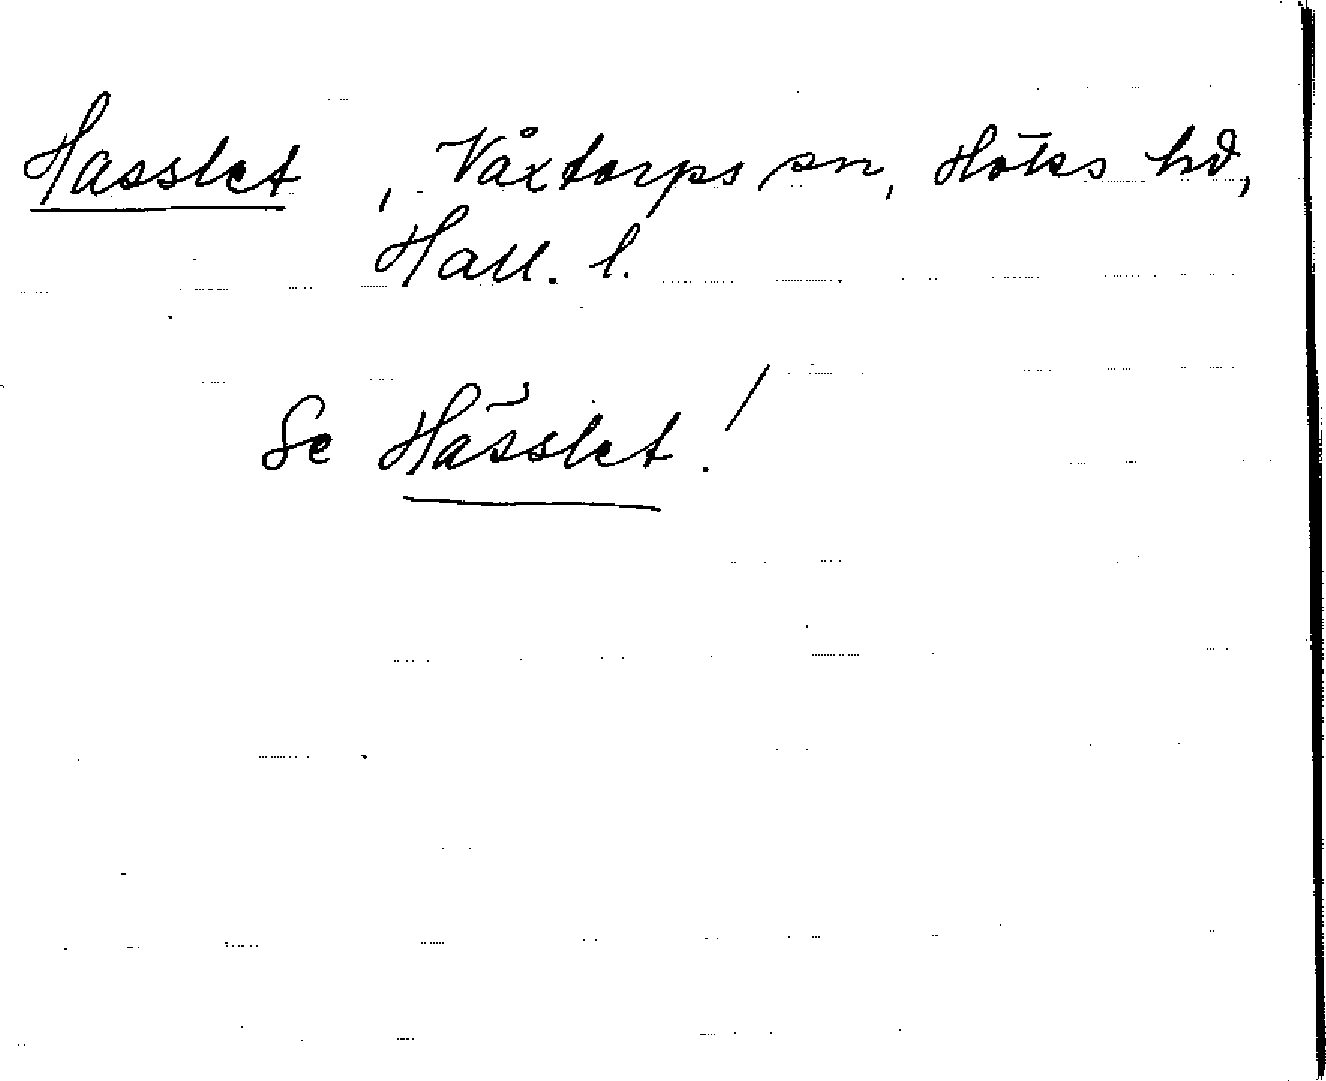 Hasslet, Våxtorps sn, Höks hd,
Hall. l.
Se Hässlet!